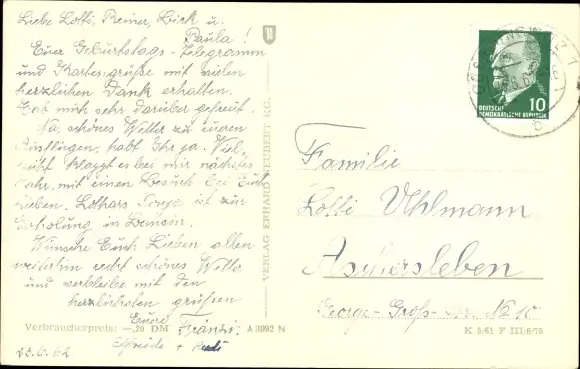 Liebe Lotti, Reiner, Dirk u.
Paula!
Euer Geburtstags-Telegramm
und Kartengrüße mit vielen
herzlichen Dank erhalten.
Hab mich sehr darüber gefreut.
Na, schönes Wetter zu euren
Ausflügen, habt Ihr ja. Viel-
leicht klappt es bei mir nächstes
Jahr, mit einen Besuch bei Euch
Lieben. Lothars ist zur
Erholung, in
Wünsche Euch Lieben allen
weiterhin recht schönes Wetter
und verbleibe mit den
herzlichsten grüßen
Eure Fränzi.
Elfriede + Rudi
Verbraucherpreis: —,20 DM A 3992 N
23.6.62
VERLAG ERHARD NEUBERT KG.
DEUTSCHE
DEMOKRATISCHE REPUBLIK
10
Familie
Lotti Uhlmann
Aschersleben
George-Groß-Str. No 10
K 5/61 F III/6/75